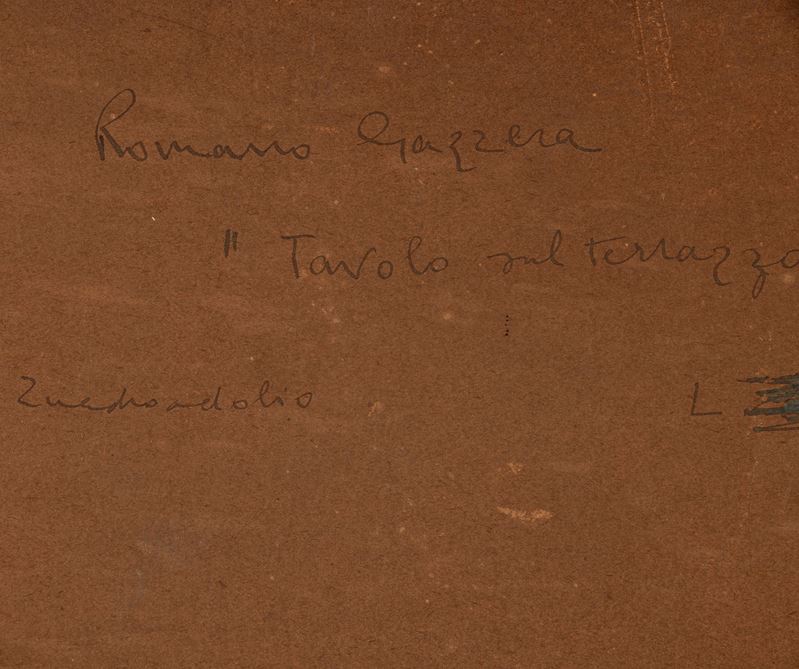 Romano Gazzera
" Tavolo sul terrazzo
Quadro ad olio
L